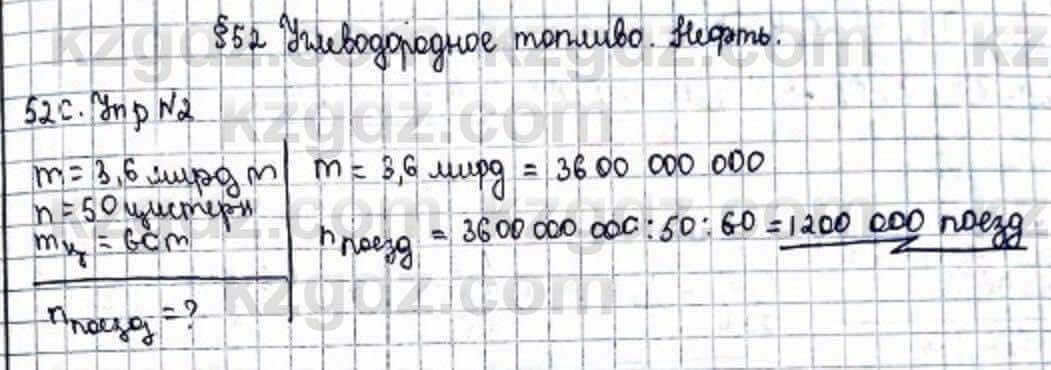 §52 Углеводородное топливо. Нефть.
52с. Упр №2
m = 3,6 млрд т
n = 50 цистерн
m ц = 60т
n поезд = ?
m = 3,6 млрд = 3600 000 000
n поезд = 3600 000 000 : 50 : 60 = 1200 000 поезд
kzgdz.com